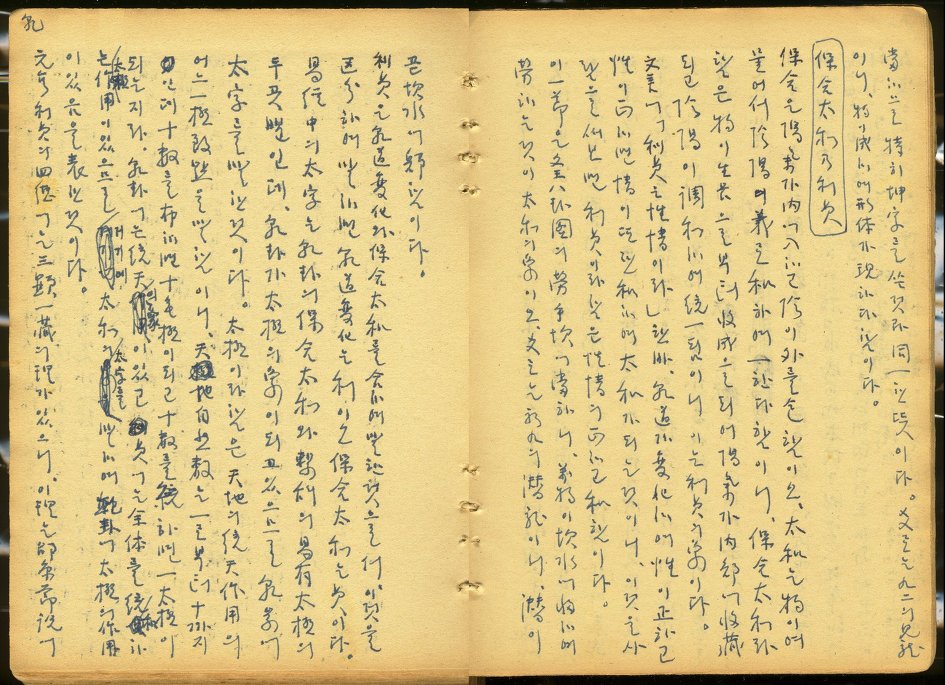 當하므로 特히 坤字를 쓴것과 同一한 뜻이다. 爻로는 九二의 見龍
이니, 物이 成하여 形体가 現하다 함이다.
保合太和乃利貞
保合은 陽氣가 內에 入하고 陰이 外를 包함이오, 太和는 物이 여
물어서 陰陽의 義로 和하여 一한다 함이니, 保合太和라
함은 物이 生長으로부터 收成으로 되어 陽氣가 內部에 收藏
되고 陰陽이 調和하여 統一됨이니, 이는 利貞의 象이다.
文言에 「利貞은 性情이라」한바, 乾道가 變化하여 性이 正하고
性이 正하면 情이 또한 和하여 太和가 되는 것이니, 이것을 사
람으로써 보면 利貞이라 함은 性情의 正하고 和함이다.
이 一節은 八卦圖의 勞乎坎에 當하니, 萬物이 坎水에 歸하여
勞하는것이 太和의 象이오, 爻로는 初九의 潛龍이니, 潛이
乾
곧 坎水에 歸함이다.
利貞은 乾道變化와 保合太和를 合하여 말한것으로서, 이것을
区分하여 말하면 乾道變化는 利이오 保合太和는 貞이다.
易經中의 太字는 乾卦의 保合太和와 繫辭의 易有太極의
두곳뿐인데, 乾卦가 太極의 象이 되고 있으므로 乾彖에
太字를 말한것이다. 太極이라함은 天地의 統天作用의
어느 極致點을 말함이니, 天地自然數는 一로부터 十까지
인데 十數를 布하면 十無極이 되고 十數를 統하면 一太極이
되는지라, 乾卦에는 統天의象이 있고 貞에는 全体를 統和하
는 太極作用이 있으므로 여기에 太和의 太字를 말하여 乾卦에 太極의 作用
이 있음을 表한것이다.
元亨利貞의 四德에는 三顯一藏의 理가 있으니, 이 理는